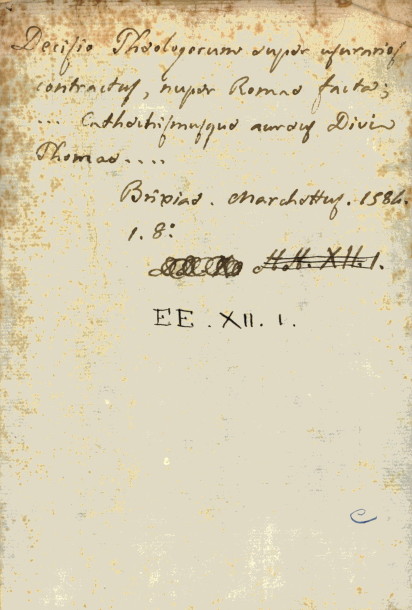 Decisio Theologorum super usurarios
contractus, nuper Romae facta;
... Cathechismusque aureus Divi
Thomae....
Brixiae. Marchettus. 1584.
1. 8:
H.H. XII. 1.
EE. XII. 1.